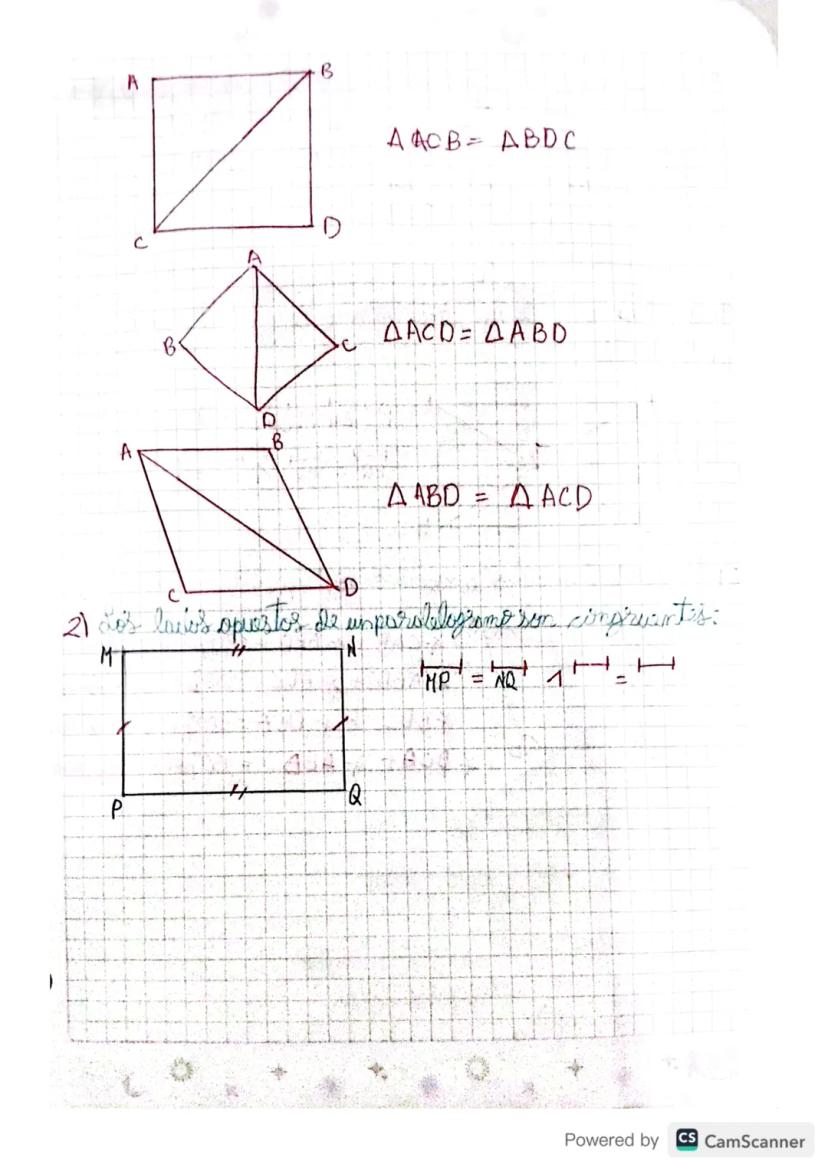 A B
ΔACB = ΔBDC
C D
A
B C ΔACD = ΔABD
D
A B
ΔABD = ΔACD
C D
2) Los lados opuestos de un paralelogramo son congruentes:
M N
MP = NQ ∧ =
P Q
Powered by CS CamScanner